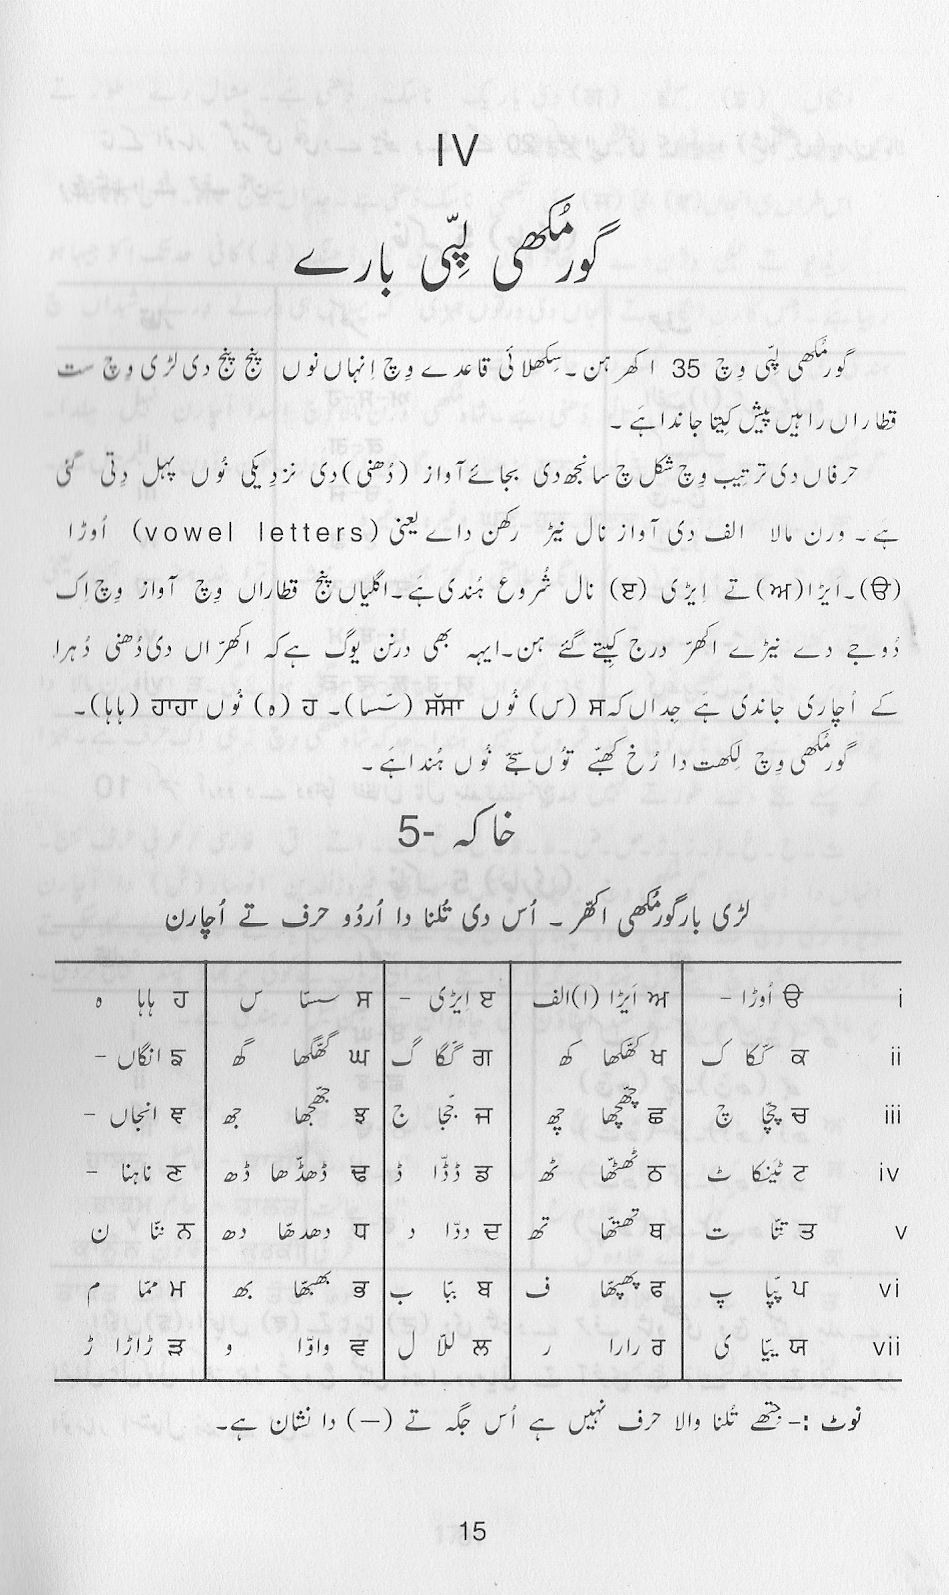 IV
گورمُکھی لِپّی بارے
گورمُکھی لِپّی وِچ 35 اکھر ہن۔ سِکھلائی قاعدے وِچ اِنہاں نوں پنج پنج دی لڑی وِچ ست
قطاراں راہیں پیش کیِتا جاندا ہَے ۔
حرفاں دی ترتیِب وِچ شکل چ سانجھ دی بجائے آواز (دُھنی) دی نزدِیکی نُوں پہل دِتی گئی
ہے ۔ ورن مالا الف دی آواز نال نیڑ رکھن داے یعنی (vowel letters) اُوڑا
(ੳ)۔ اَیڑا (ਅ) تے اِیڑی (ੲ) نال شُروع ہُندی ہَے۔ اگلیاں پنج قطاراں وِچ آواز وِچ اِک
دُوجے دے نیڑے اکھرّ درج کیِتے گئے ہن۔ ایہہ بھی درنن یوگ ہے کہ اکھرّاں دی دُھنی دُہرا
کے اُچاری جاندی ہَے جِداں کہ ਸ (س) نُوں ਸੱਸਾ (سَسا)۔ ਹ (ہ) نُوں ਹਾਹਾ (ہاہا)۔
گورمُکھی وِچ لِکھت دا رُخ کھبّے توُں سجّے نُوں ہُندا ہَے ۔
خاکہ -5
لڑی بار گورمُکھی اکھّر ۔ اُس دی تُلنا دا اُردُو حرف تے اُچارن
i ੳ اُوڑا – ਅ اَیڑا (ا) الف ੲ اِیڑی – ਸ سسّا س ਹ ہاہا ہ
ii ਕ کّکا ک ਖ کھّکھا کھ ਗ گّگا گ ਘ گھّگھا گھ ਙ انگاں –
iii ਚ چّچا چ ਛ چھّچھا چھ ਜ جّجا ج ਝ جھّجھا جھ ਞ انجاں –
iv ਟ ٹینکا ٹ ਠ ٹھٹھّا ٹھ ਡ ڈڈّا ڈ ਢ ڈھڈّھا ڈھ ਣ ناہنا –
v ਤ تتّا ت ਥ تھتھّا تھ ਦ ددّا د ਧ دھدھّا دھ ਨ ننّا ن
vi ਪ پپّا پ ਫ پھپھّا ف ਬ ببّا ب ਭ بھبھّا بھ ਮ ممّا م
vii ਯ ییّا ی ਰ رارا ر ਲ للّا ل ਵ واوّا و ੜ ڑاڑا ڑ
نوٹ :- جتھے تُلنا والا حرف نہیں ہے اُس جگہ تے (–) دا نشان ہے۔
15